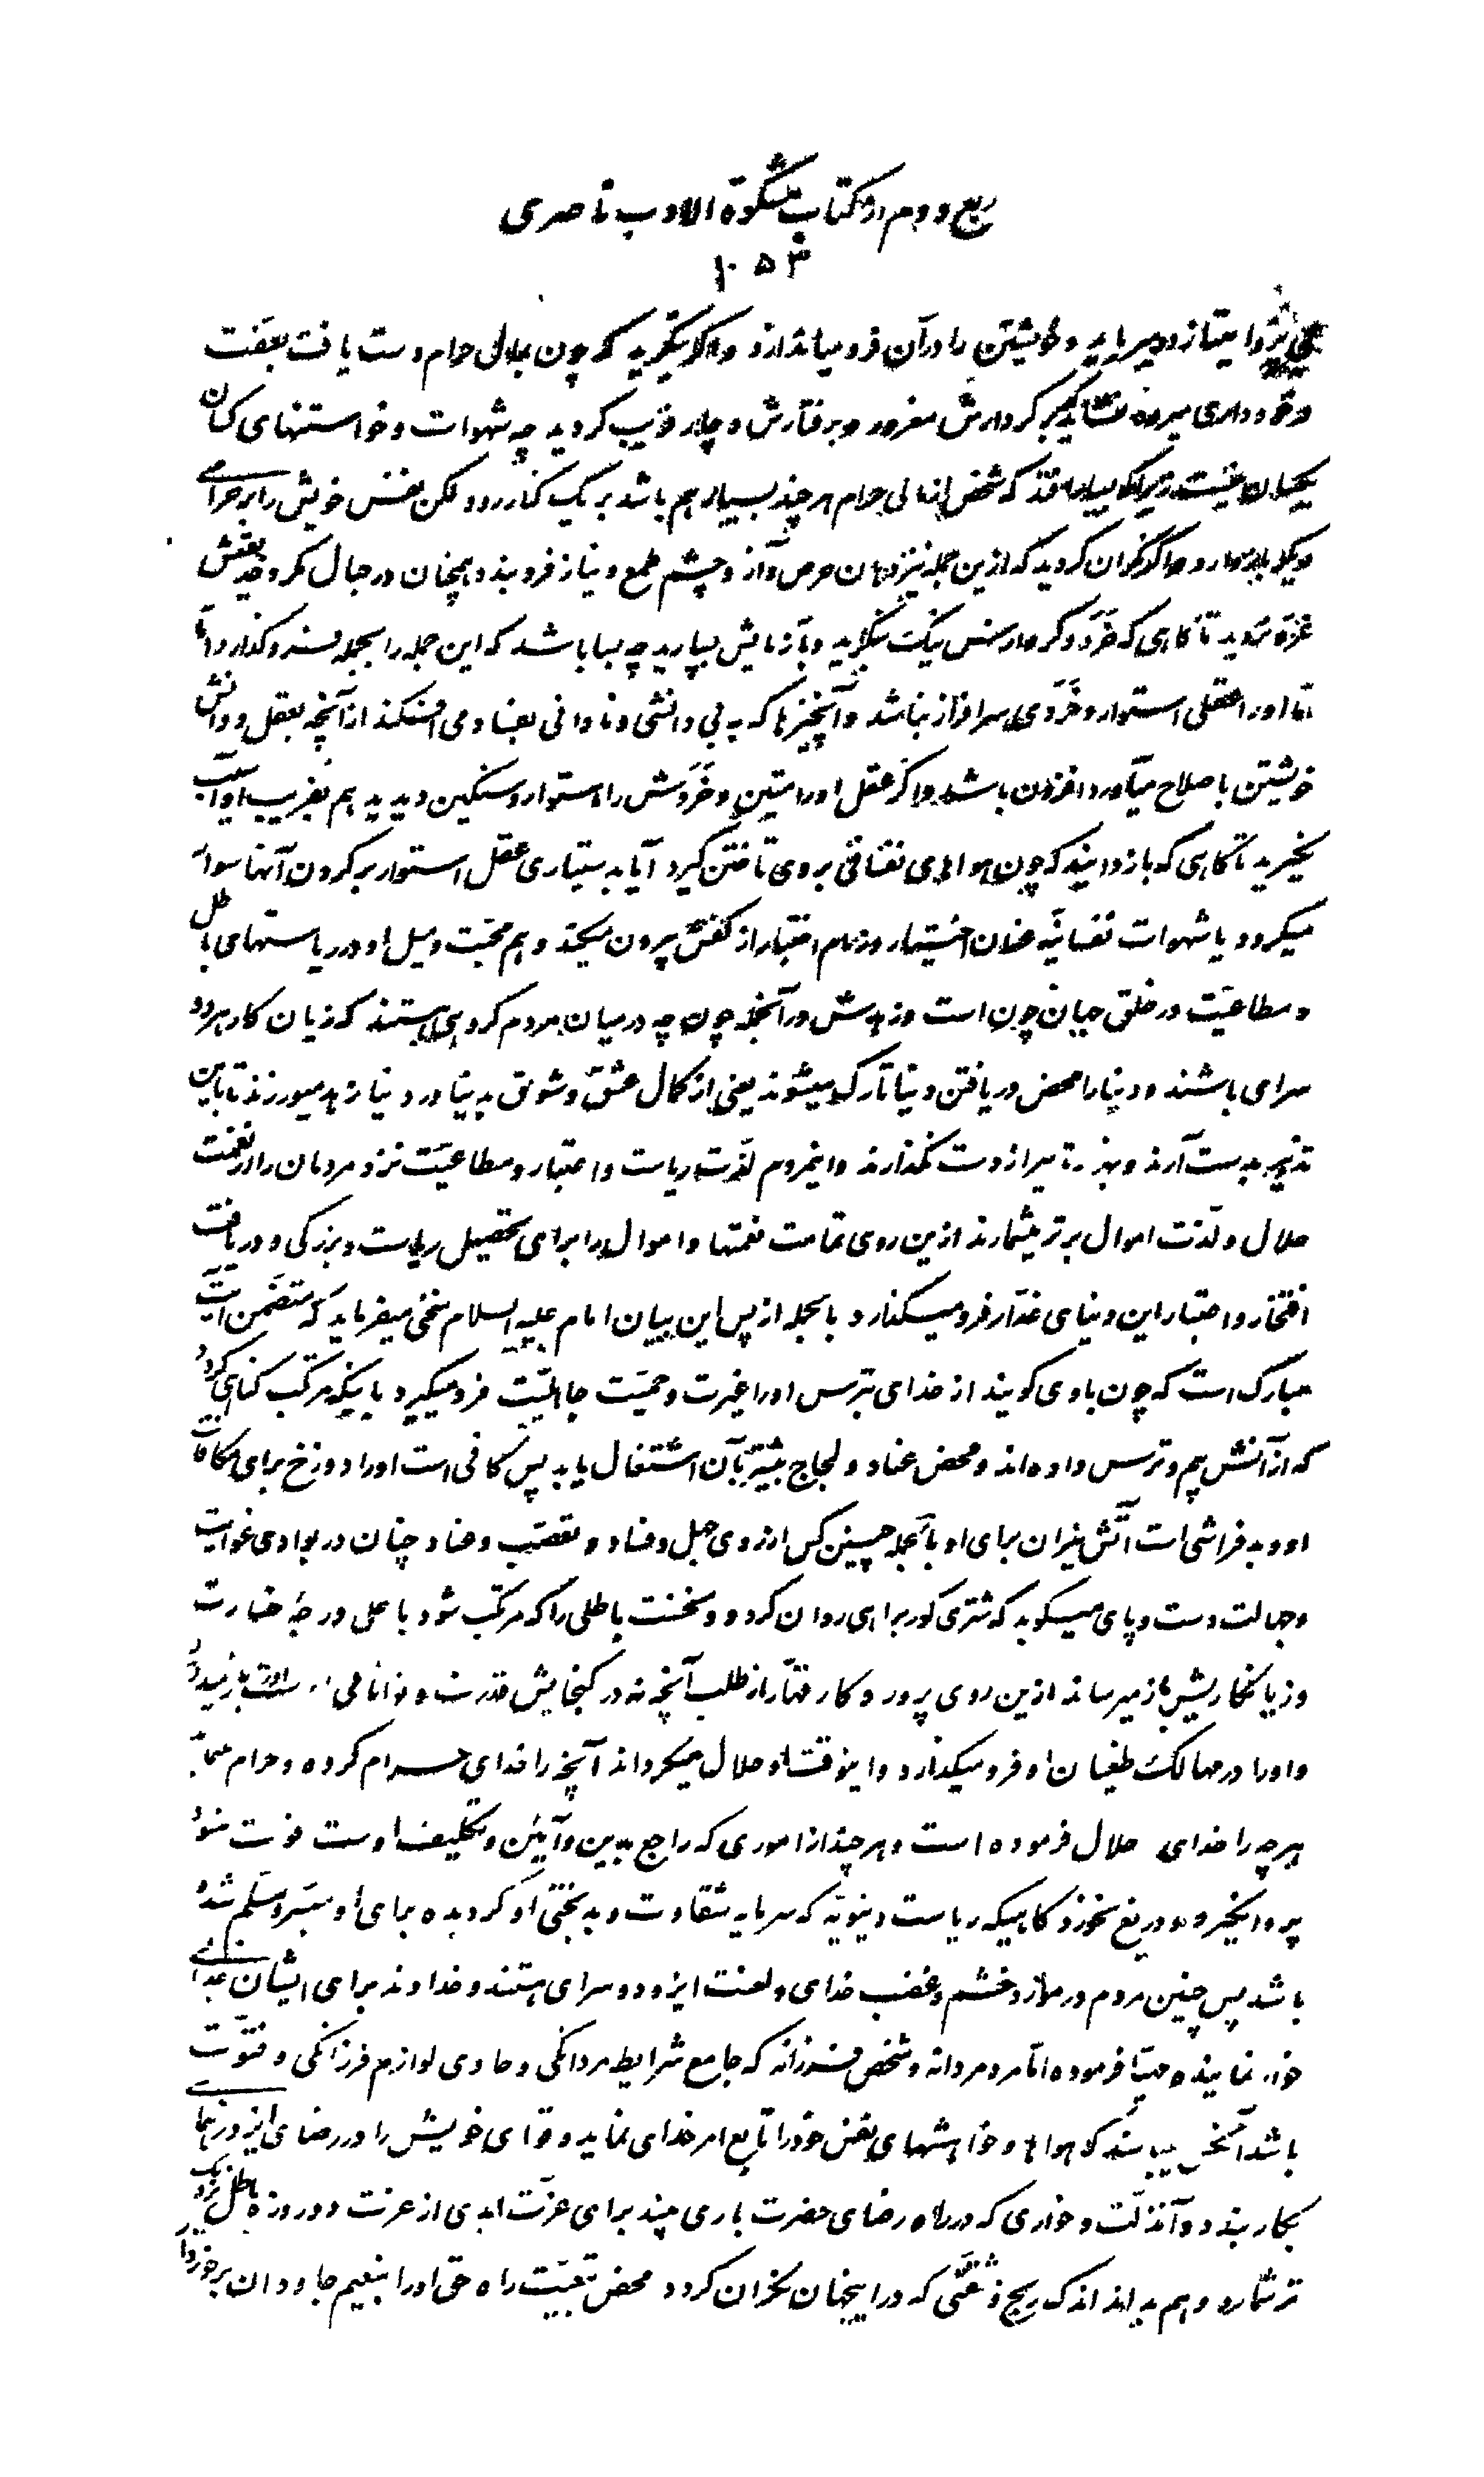 ربع دوم از کتاب مشکوة الادب ناصری
۱۰۵۳
میتازد و میرباید و خویشتن را در آن فرو میاندازد و اگر بنگرید که چون بمال حرام دست یافت بعفت
و خودداری میرود نشاید بکردارش مغرور و برفتارش دچار فریب گردید چه شهوات و خواستنهای کسان
یکسان نیست زیرا که بسیار افتد که شخص از مالی حرام هر چند بسیار هم باشد بر یک کنار رود لکن نفس خویش را بر حرامی
دیگر باز دارد و اگر نگران گردید که ازین جمله نیز دهان حرص و آز و چشم طمع و نیاز فرو بندد همچنان در حبال مکر و خدیعتش
غره نشوید تا گاهی که خرد و کردارش نیک بنگرید و بآزمایش بسپارید چه بسا باشد که این جمله را بجمله فرو گذارد اما
اما او را عقلی استوار و خردی سرافراز نباشد و آنچیزها که به بی دانشی و نادانی بفساد می افکند از آنچه بعقل و دانش
خویشتن باصلاح میآورد افزون باشد و اگر عقل او را متین و خردش را استوار و سنگین دیدید هم بفریب او آسیب
نخرید تا گاهی که باز دانید که چون هواهای نفسانی بروی تاختن گیرد آیا به دستیاری عقل استوار بر گردن آنها سوار
میگردد یا شهوات نفسانیه عنان اختیار و زمام اختیار از کفش بیرون میکند و هم محبت و میل او در ریاستهای باطل
و مطاعیت در خلق جهان چون است و زهدش در آنجمله چون چه در میان مردم گروهی هستند که زیان کار هر دو
سرای باشند و دنیا را محض دریافتن دنیا تارک میشوند یعنی از کمال عشق و شوق به دنیا در دنیا زهد میورزند تا باین
تدبیر بدست آرند و بهیچ تدبیر از دست نگذارند و اینمردم لذت ریاست و اعتبار و مطاعیت نزد مردمان را از نعمت
حلال و لذت اموال برتر میشمارند ازین روی تمامت نعمتها و اموال را برای تحصیل ریاست و بزرگی و دریافت
افتخار و اعتبار این دنیای غدار فرو میگذارد بالجمله از پس این بیان امام علیه السلام سخنی میفرماید که متضمن آیت
مبارک است که چون باوی گویند از خدای بترس او را غیرت و حمیت جاهلیت فرو میگیرد باینکه مرتکب گناهی گردد
که از آتش بیم و ترس داده اند و محض عناد و لجاج بیشتر بآن اشتغال یابد پس کافی است او را دوزخ برای مکافات
او و بد فراشی است آتش نیران برای او بالجمله چنین کس از روی جهل و فساد و تعصب و عناد چنان در بوادی غوایت
و جهالت دست و پای میکوبد که شتری کور براهی روان گردد و نخست باطلی را که مرتکب شود با علی درجهٔ خسارت
و زیانکاریش باز میرساند ازین روی پروردگار قهار از طلب آنچه نه در گنجایش قدرت و توانائی اوست باز نمیدارد
و او را در مهالک طغیان او فرو میگذارد و اینوقت او حلال میگرداند آنچه را خدای حرام کرده و حرام مینماید
هر چه را خدای حلال فرموده است و هر چند از اموری که راجع بدین و آئین و تکلیف اوست فوت شود
پروا نگیرد و دریغ نخورد گاهیکه ریاست دنیویه که سرمایه شقاوت و بدبختی او گردیده برای او میسر و مسلم شده
باشد پس چنین مردم در مورد خشم و غضب خدای و لعنت ایزد دو سرای هستند و خداوند برای ایشان عذابی
خوار نماینده مهیا فرموده اما مرد مردانه و شخص فرزانه که جامع شرایط مردانگی و حاوی لوازم فرزانگی و فتوت
باشد آنکس میباشد که هواها و خواهشهای نفس خود را تابع امر خدای نماید و قوای خویش را در رضای ایزد رهنمای
بکار بندد و آنذلت و خواری که در راه رضای حضرت باری بیند برای عزت ابدی از عزت دو روزه باطل نزدیک
تر شمارد و هم بداند اندک رنج و نقمتی که در اینجهان نگران گردد محض تبعیت راه حق او را بنعیم جاودان برخوردار